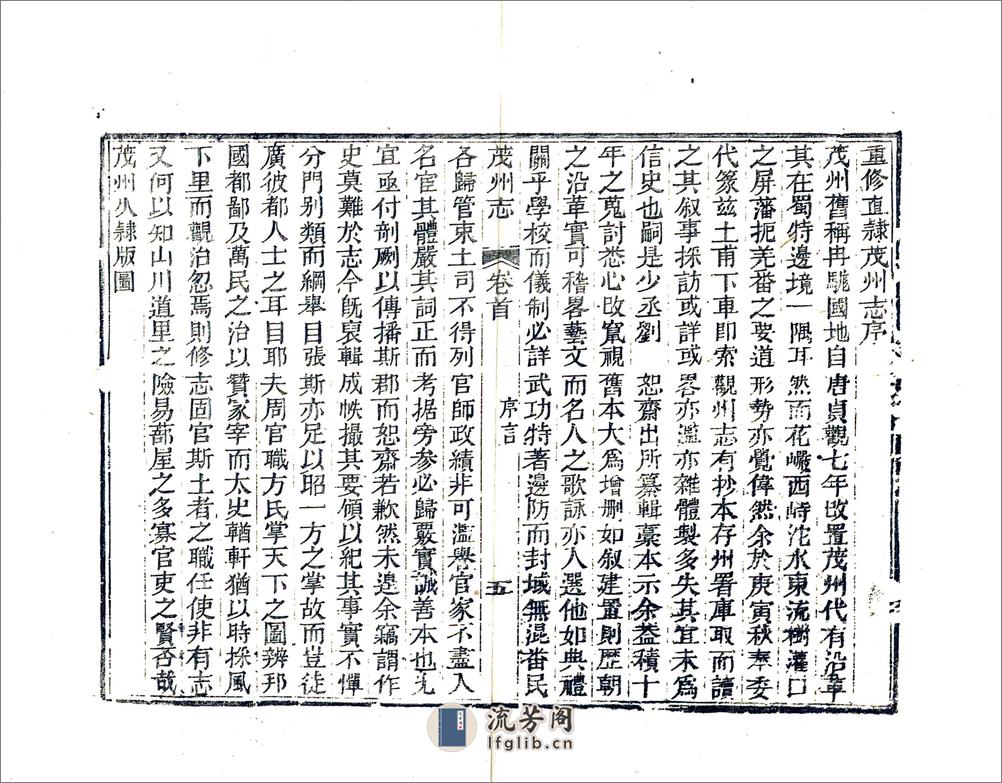 重修直隷茂州志序
茂州舊稱冉駹國地自唐貞觀七年改置茂州代有沿革
其在蜀特邊境一隅耳然而花巖西峙沱水東流樹灌口
之屏藩扼羌番之要道形勢亦覺偉然余於庚寅秋奉委
代篆兹土甫下車即索觀州志有抄本存州署庫取而讀
之其叙事採訪或詳或畧亦濫亦雜體製多失其宜未爲
信史也嗣是少丞劉恕齋出所纂輯藁本示余葢積十
年之蒐討悉心改竄視舊本大爲增删如叙建置則歷朝
之沿革實可稽畧藝文而名人之歌詠亦入選他如典禮
關乎學校而儀制必詳武功特著邊防而封域無混畨民
茂州志 卷首 序言 五
各歸管束土司不得列官師政績非可濫譽官家不盡入
名宦其體嚴其詞正而考据旁參必歸覈實誠善本也尤
宜亟付剞劂以傳播斯郡而恕齋若歉然未遑余竊謂作
史莫難於志今旣裒輯成帙撮其要領以紀其事實不憚
分門别類而綱舉目張斯亦足以昭一方之掌故而豈徒
廣彼都人士之耳目耶夫周官職方氏掌天下之圖辨邦
國都鄙及萬民之治以贊冢宰而太史輶軒猶以時採風
下里而觀治忽焉則修志固官斯土者之職任使非有志
又何以知山川道里之險易蔀屋之多寡官吏之賢否哉
茂州久隷版圖
流芳阁
lfglib.cn